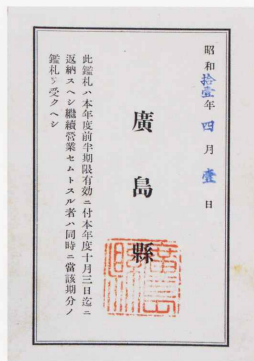 昭和拾壹年四月壹日
廣島縣
此鑑札ハ本年度前半期限有効ニ付本年度十月三日迄ニ
返納スヘシ繼續營業セムトスル者ハ同時ニ當該期分ノ
鑑札ヲ受クヘシ